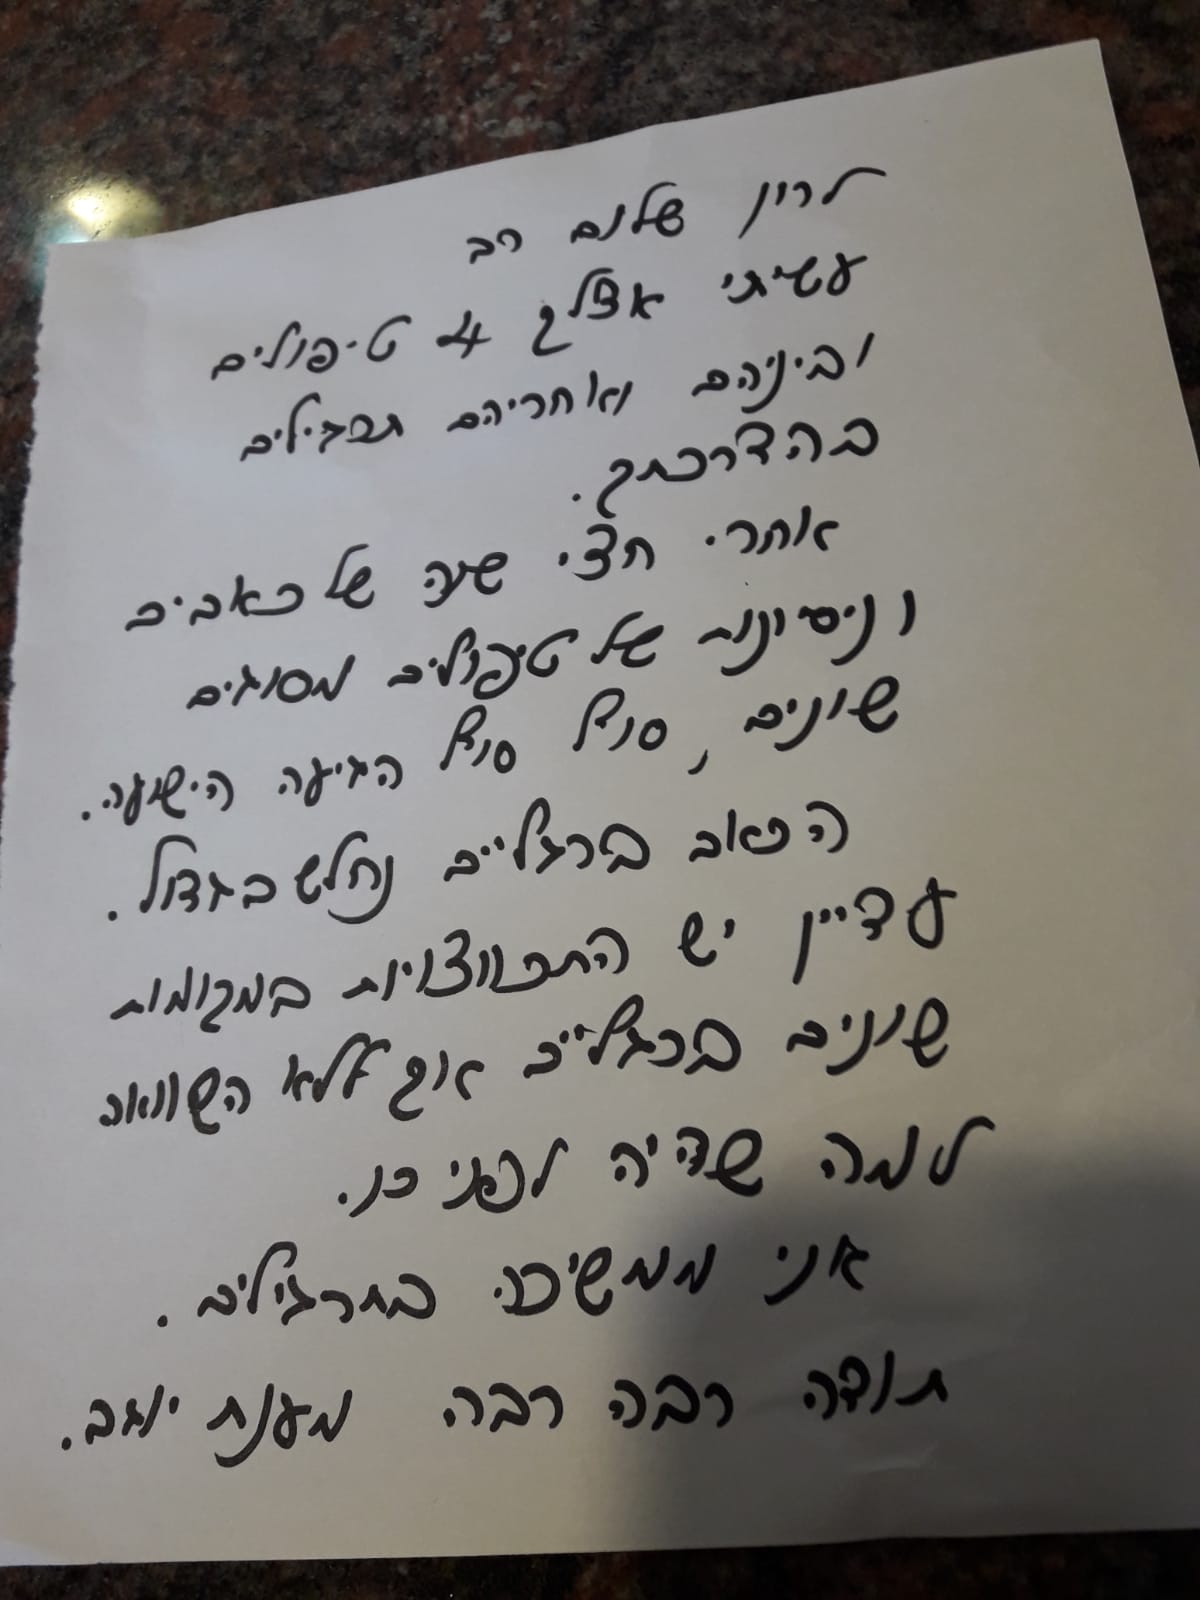 לרון שלום רב
עשיתי אצלך 4 טיפולים
וביניהם ואחריהם תרגילים
בהדרכתך.
אחרי חצי שנה של כאבים
וניסיונות של טיפולים מסוגים
שונים, סוף סוף הגיעה הישועה.
הכאב ברגליים נחלש בגדול.
עדיין יש התכווצויות במקומות
שונים ברגליים אך ללא השוואה
למה שהיה לפני כן.
אני ממשיכה בתרגילים.
תודה רבה רבה מענת יוגב.